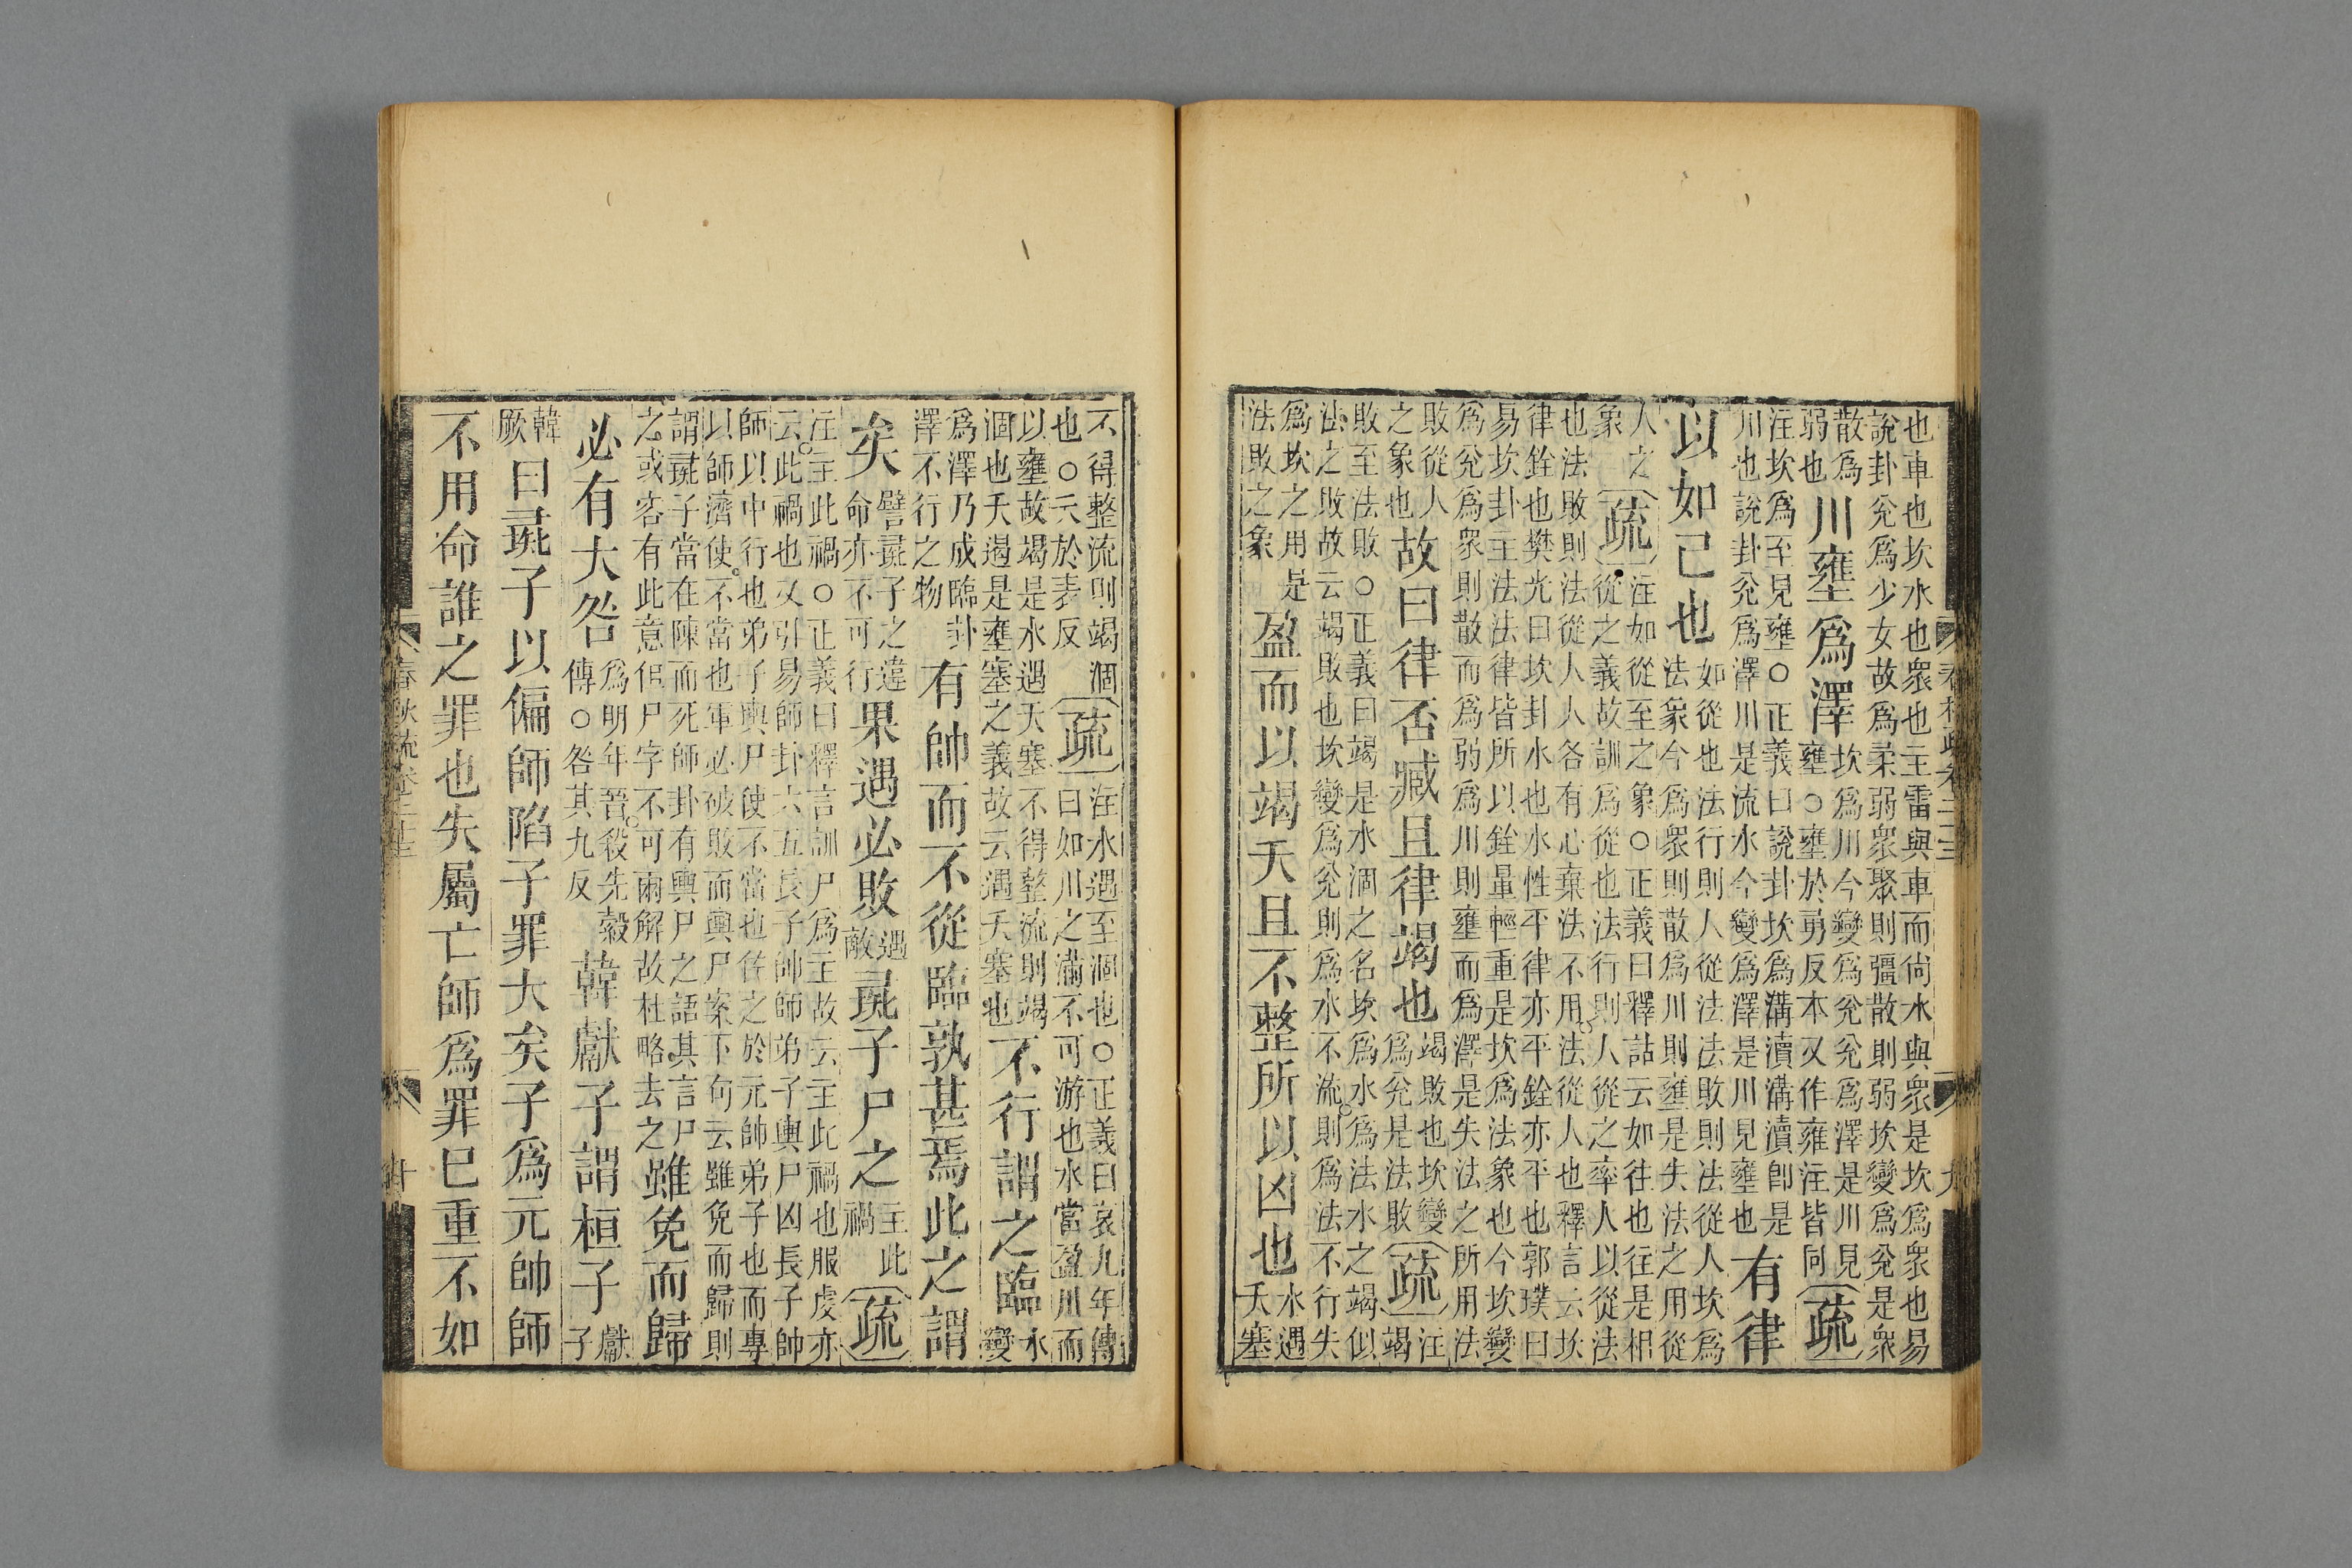 也車也坎水也衆也主雷與車而尙水與衆是坎爲衆也易
說卦兊爲少女故爲柔弱衆聚則彊散則弱坎變爲兊是衆
散爲
弱也
川壅爲澤
坎爲川今變爲兊兊爲澤是川見
壅○壅於勇反本又作雍注皆同
疏
注坎爲至見壅○正義曰說卦坎爲溝瀆溝瀆卽是
川也說卦兊爲澤川是流水今變爲澤是川見壅也
有律
以如己也
如從也法行則人從法法敗則法從人坎爲
法象今爲衆則散爲川則壅是失法之用從
人之
象
疏
注如從至之象○正義曰釋詁云如往也往是相
從之義故訓爲從也法行則人從之率人以從法
也法敗則法從人人各有心棄法不用法從人也釋言云坎
律銓也樊光曰坎卦水也水性平律亦平銓亦平也郭璞曰
易坎卦主法法律皆所以銓量輕重是坎爲法象也今坎變
爲兊爲衆則散而爲弱爲川則壅而爲澤是失法之所用法
敗從人
之象也
故曰律否臧且律竭也
竭敗也坎變
爲兊是法敗
疏
注
竭
敗至法敗○正義曰竭是水涸之名坎爲水爲法水之竭似
法之敗故云竭敗也坎變爲兊則爲水不流則爲法不行失
爲坎之用是
法敗之象
盈而以竭夭且不整所以凶也
水遇
夭塞
不得整流則竭涸
也○夭於表反
疏
注水遇至涸也○正義曰哀九年傳
曰如川之滿不可游也水當盈川而
以壅故竭是水遇夭塞不得整流則竭
涸也夭遏是壅塞之義故云遇夭塞也
不行謂之臨
水
變
爲澤乃成臨卦
澤不行之物
有帥而不從臨孰甚焉此之謂
矣
譬彘子之違
命亦不可行
果遇必敗
遇
敵
彘子尸之
主此
禍
疏
注主此禍○正義曰釋言訓尸爲主故云主此禍也服虔亦
云此禍也又引易師卦六五長子帥師弟子輿尸凶長子帥
師以中行也弟子輿尸使不當也佐之於元帥弟子也而專
以師濟使不當也軍必破敗而輿尸案下句云雖免而歸則
謂彘子當在陳而死師卦有輿尸之語其言尸
之或容有此意但尸字不可兩解故杜略去之
雖免而歸
必有大咎
爲明年晉殺先縠
傳○咎其九反
韓獻子謂桓子
獻
子
韓
厥
曰彘子以偏師陷子罪大矣子爲元帥師
不用命誰之罪也失屬亡師爲罪已重不如
春秋疏卷二十三